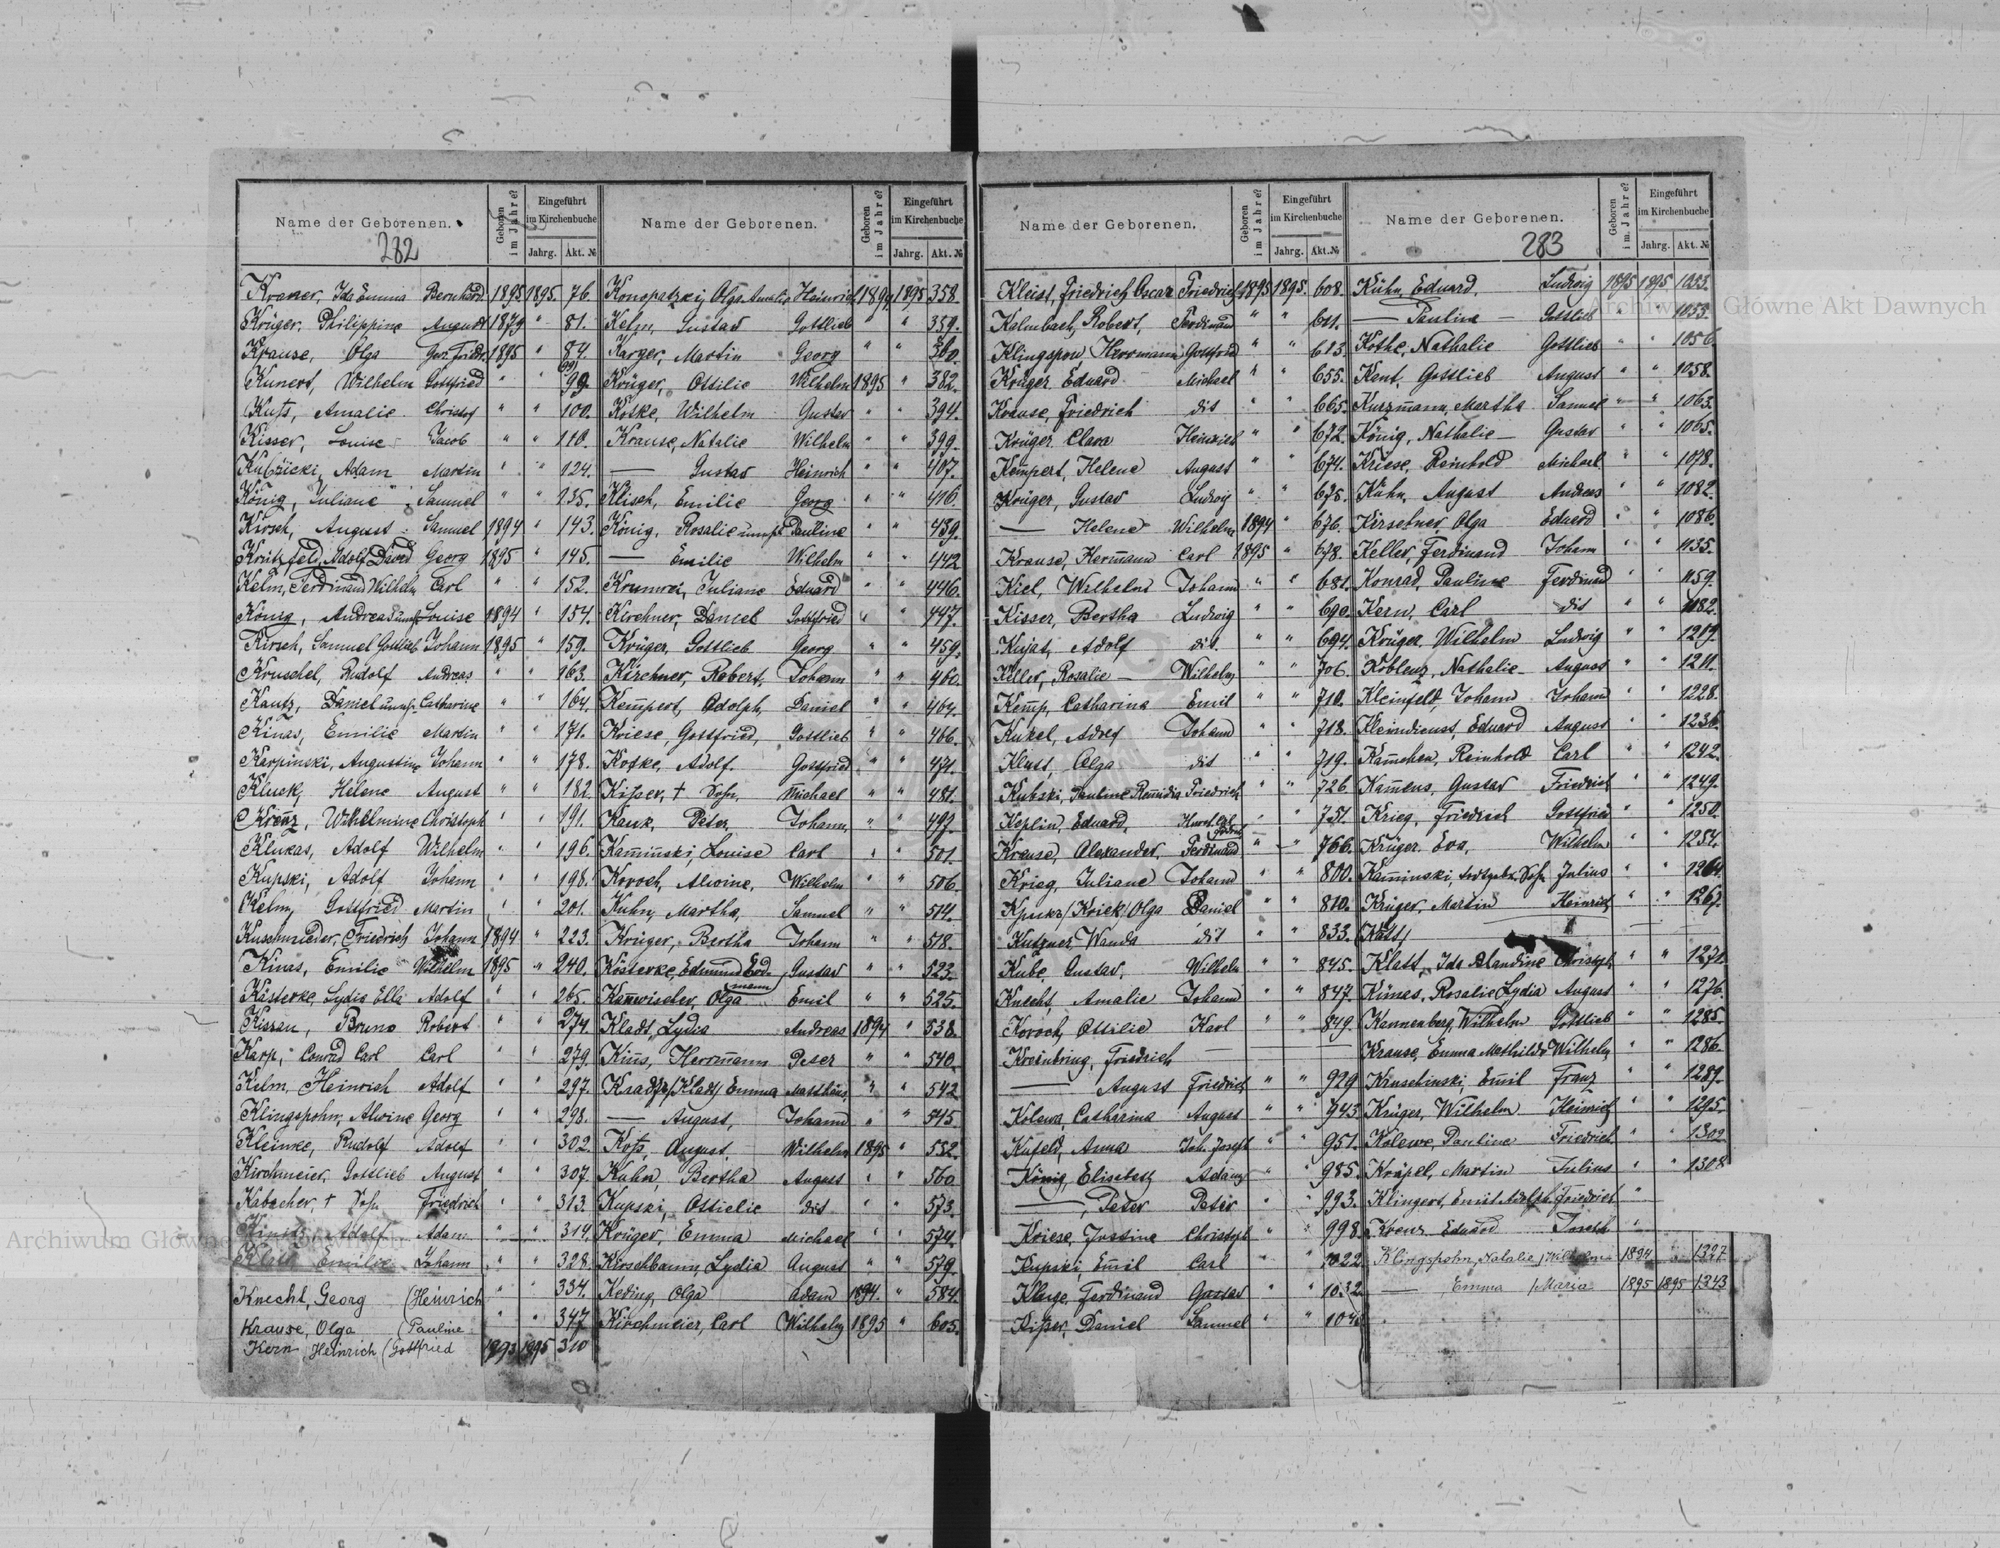 Name der Geborenen.
282
Geboren im Jahre?
Eingeführt im Kirchenbuche
Jahrg. Akt. №
Kraner, Ida Emma Bernhard 1895 1895. 76.
Krüger, Philippine August 1879 " 81.
Krause, Olga Gus. Friedr. 1895 " 84.
Kunert, Wilhelm Gottfried " " 99.
Kutz, Amalie Christof " " 100.
Kisser, Louise Jacob " " 110.
Kubzicki, Adam Martin " " 124.
König, Juliane Samuel " " 135.
Kirsch, August Samuel 1894 " 143.
Kritzfeld, Adolf David Georg 1895 " 145.
Kelm, Ferdinand Wilhelm Carl " " 152.
König, Andreas unehl. Louise 1894 " 154.
Kirsch, Samuel Gottlieb Johann 1895 " 159.
Kruschel, Rudolf Andreas " " 163.
Kautz, Daniel unehl. Catharine " " 164.
Kinas, Emilie Martin " " 171.
Karpinski, Augustine Johann " " 178.
Kluck, Helene August " " 182.
Krenz, Wilhelmine Christoph " " 191.
Klukas, Adolf Wilhelm " " 196.
Kupski, Adolf Johann " " 198.
Kelm, Gottfried Martin " " 201.
Kuschmieder, Friedrich Johann 1894 " 223.
Kinas, Emilie Wilhelm 1895 " 240.
Kästerke, Lydia Ella Adolf " " 265.
Kissau, Bruno Robert " " 274.
Karp, Conrad Carl Carl " " 279.
Kelm, Heinrich Adolf " " 297.
Klingspohn, Alwine Georg " " 298.
Kleinke, Rudolf Adolf " " 302.
Kirchmeier, Gottlieb August " " 307.
Kabacher, † Sohn Friedrich " " 313.
Adolf Adam " " 314.
Emilie Johann " " 328.
Knecht, Georg (Heinrich " " 334.
Krause, Olga (Pauline " " 347.
Kern, Heinrich (Gottfried 1893 1895 310
Name der Geborenen.
Geboren im Jahre?
Eingeführt im Kirchenbuche
Jahrg. Akt. №
Konopatzki, Olga Amalie Heinrich 1894 1895 358.
Kelm, Gustav Gottlieb " " 359.
Karger, Martin Georg " " 360.
Krüger, Ottilie Wilhelm 1895 " 382.
Koske, Wilhelm Gustav " " 394.
Krause, Natalie Wilhelm " " 399.
— Gustav Heinrich " " 407.
Klisch, Emilie Georg " " 416.
König, Rosalie unehl. Pauline " " 439.
— Emilie Wilhelm " " 442
Krumrei, Juliane Eduard " " 446.
Kirchner, Daniel Gottfried " " 447.
Krüger, Gottlieb Georg " " 459.
Kirchner, Robert, Johann " " 460.
Kempert, Adolph, Daniel " " 464.
Kriese, Gottfried, Gottlieb " " 466.
Koske, Adolf. Gottfried " " 471.
Kisser, † Sohn, Michael " " 481.
Kauk, Peter, Johann, " " 497.
Kaminski, Louise Carl " " 501.
Koroch, Alwine, Wilhelm " " 506.
Kuhn, Martha, Samuel " " 514.
Krüger, Bertha Johann " " 518.
Kösterke, Edmund Erd- mann Gustav " " 523.
Kannwischer, Olga Emil " " 525.
Kladt, Lydia Andreas 1894 " 538.
Kins, Herrmann Peter " " 540.
Emma Matthäus " " 542
— August, Johann " " 545.
Kotz, August, Wilhelm 1895 " 552.
Kuhn, Bertha August " " 560
Kupski, Ottielie dit " " 573.
Krüger, Emma Michael " " 574
Kirschbaum, Lydia August " " 579.
Keding, Olga Adam 1894. " 584.
Kirchmeier, Carl Wilhelm 1895 " 605.
Name der Geborenen.
Geboren im Jahre?
Eingeführt im Kirchenbuche
Jahrg. Akt. №
Kleist, Friedrich Oscar Friedrich 1895 1895. 608.
Kalmbach, Robert, Ferdinand " " 611.
Klingspon Herrmann Gottfried " " 613.
Krüger, Eduard Michael " " 655.
Krause, Friedrich dit " " 665.
Krüger, Clara Heinrich " " 672.
Kempert, Helene August " " 674.
Krüger, Gustav Ludwig " " 675.
— Helene Wilhelm 1894 " 676.
Krause, Hermann Carl 1895 " 678.
Kiel, Wilhelm Johann " " 681.
Kisser, Bertha Ludwig " " 690.
Kujat, Adolf dit. " " 694.
Keller, Rosalie — Wilhelm " " 706.
Kemp, Catharina Emil " " 710.
Kukel, Adolf Johann " " 718.
Klatt, Olga dit " " 719.
Kubski, Pauline Friedrich " " 726
Keplin, Eduard, " " 751.
Krause, Alexander, Ferdinand " " 766.
Krieg, Juliane Johann " " 800.
Olga Daniel " " 810.
Kutzner, Wanda dit " " 833.
Kube, Gustav, Wilhelm " " 845.
Knecht, Amalie Johann " " 847.
Koroch, Ottilie Karl " " 849.
Kreinbring, Friedrich —
— August Friedrich " " 929
Kolewa, Catharina August " " 943
Kufeld, Anna Joh. Joseph " " 951.
König, Elisabeth Adam " " 985.
—, Peter Peter " " 993.
Kriese, Justine Christoph " " 998.
Kupski, Emil Carl " " 1022
Kluge, Ferdinand Gustav " " 1032
Kisser, Daniel Samuel " "
Name der Geborenen.
283
Geboren im Jahre?
Eingeführt im Kirchenbuche
Jahrg. Akt. №
Kühn, Eduard, Ludwig 1895 1895 1053.
— Pauline — Gottlieb " " 1055.
Kothe, Nathalie Gottlieb " " 1056
Kent, Gottlieb August " " 1058.
Kurzmann, Martha Samuel " " 1063.
König, Nathalie — Gustav " " 1065.
Kriese, Reinhold Michael " " 1078.
Kühn, August Andreas " " 1082.
Kirschner Olga Eduard " " 1086.
Keller, Ferdinand Johann " " 1135.
Konrad, Pauline Ferdinand " " 1159.
Kern, Carl dit " " 1182.
Krüger, Wilhelm Ludwig " " 1209.
Koblenz, Nathalie August " " 1211.
Kleinfeld, Johann Johann " " 1228.
Kleindienst, Eduard August " " 1236.
Kamchen, Reinhold Carl " " 1242.
Kamens, Gustav Friedrich " " 1249.
Krieg, Friedrich Gottfried " " 1250.
Krüger, Eva, Wilhelm " " 1254.
Kaminski, todtgeb. Sohn Julius " " 1264.
Krüger, Martin Heinrich " " 1267.
Klatt, Ida Blandine Christoph " " 1271.
Kimas, Rosalie Lydia August " " 1276.
Kannenberg, Wilhelm Gottlieb " " 1285.
Krause, Emma Mathilde Wilhelm " " 1286.
Kruschinski, Emil Franz " " 1289.
Krüger, Wilhelm Heinrich " " 1295.
Kolewe, Pauline Friedrich " " 1302
Kräpel, Martin Julius " " 1308
Klingert, Emil Adolph Friedrich "
Krenz Eduard Joseph "
Klingspohn, Natalie / Wilhelmine 1894 " 1327
— Emma / Maria 1895 1895 1343
Archiwum Główne Akt Dawnych
Archiwum Główne Akt Dawnych